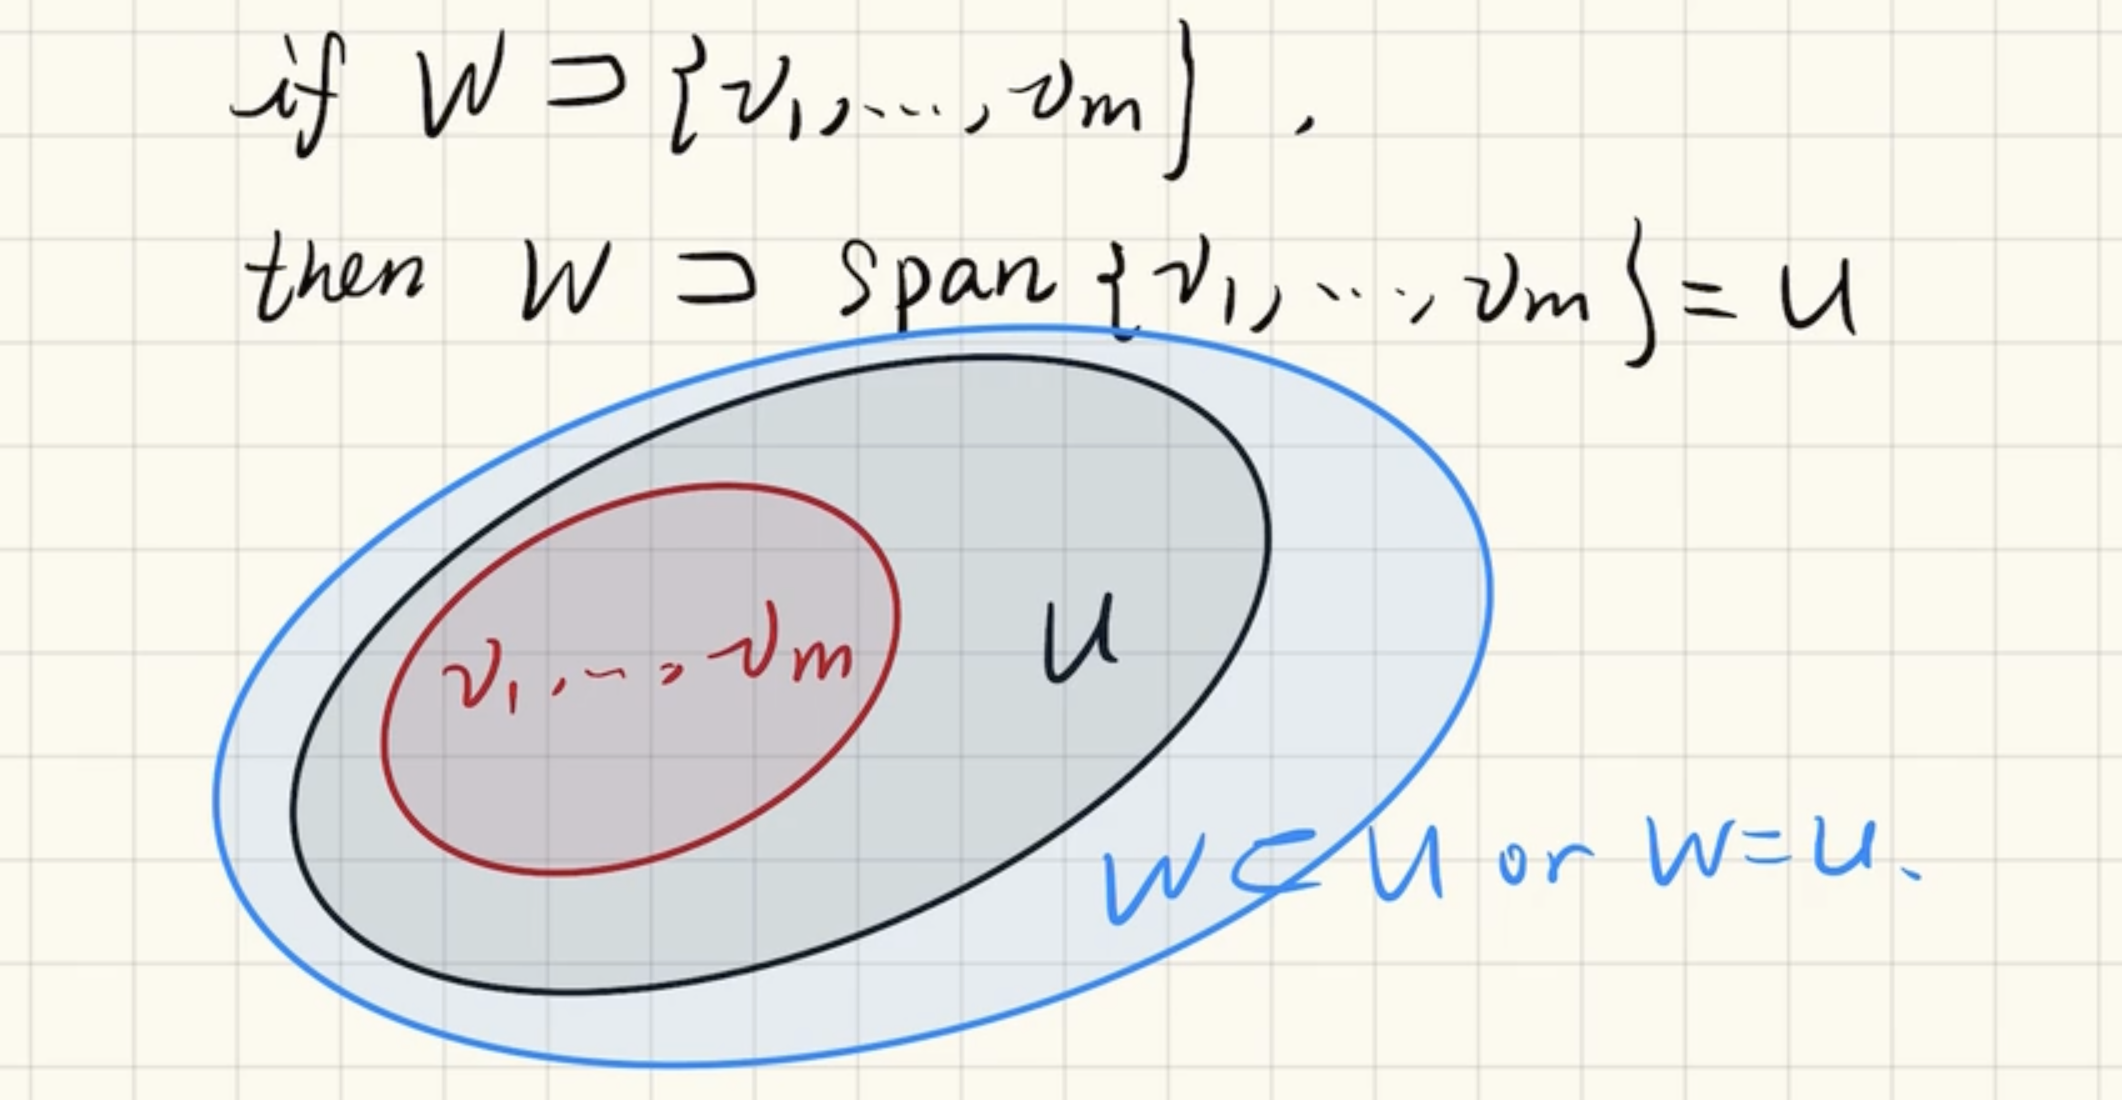 if W ⊃ {v₁, ..., vₘ} ,
then W ⊃ span {v₁, ..., vₘ} = U
v₁, ..., vₘ
U
W ⊂ U or W = U.